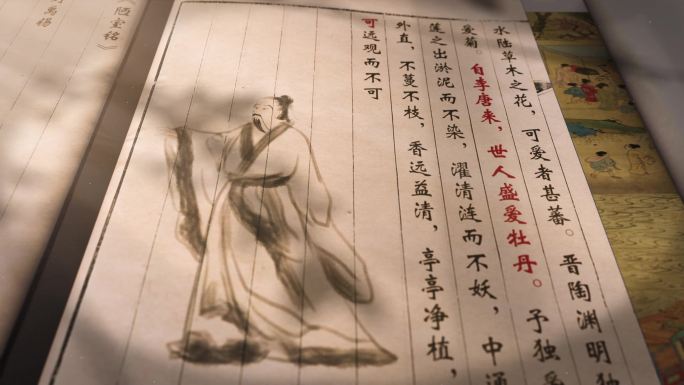 水陆草木之花，可爱者甚蕃。晋陶渊明独
爱菊。自李唐来，世人盛爱牡丹。予独爱
莲之出淤泥而不染，濯清涟而不妖，中通
外直，不蔓不枝，香远益清，亭亭净植，
可远观而不可
《陋室铭》
禹锡